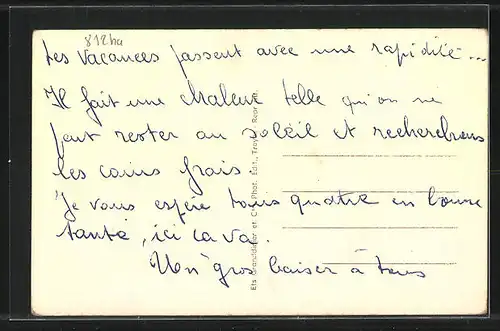 812ha
Les vacances passent avec une rapidité...
Il fait une chaleur telle qu'on ne
peut rester au soleil et recherchons
les coins frais.
Je vous espère tous quatre en bonne
santé, ici ca va.
Un gros baiser à tous
Ets Grandidier et Cie, Phot. Édit., Troyes